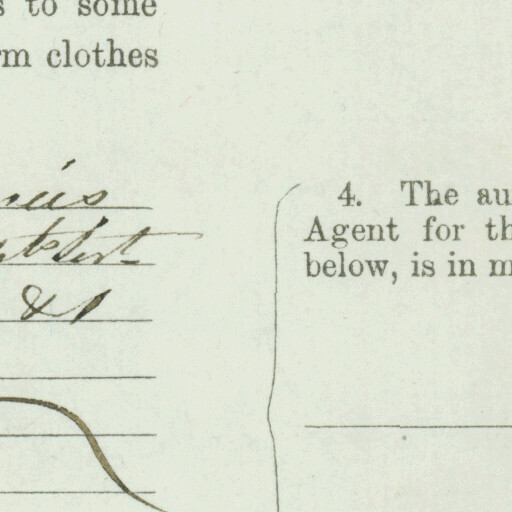 s to some
rm clothes
& 1
4. The au
Agent for th
below, is in m